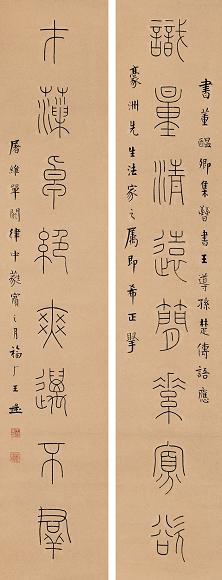 書董醞卿集晉書王導孫楚傳語應
識量清遠簡素寡欲
豪洲先生法家之屬即希正掔
才藻卓絕爽邁不群
屠維單閼律中蕤賓之月福厂王禔